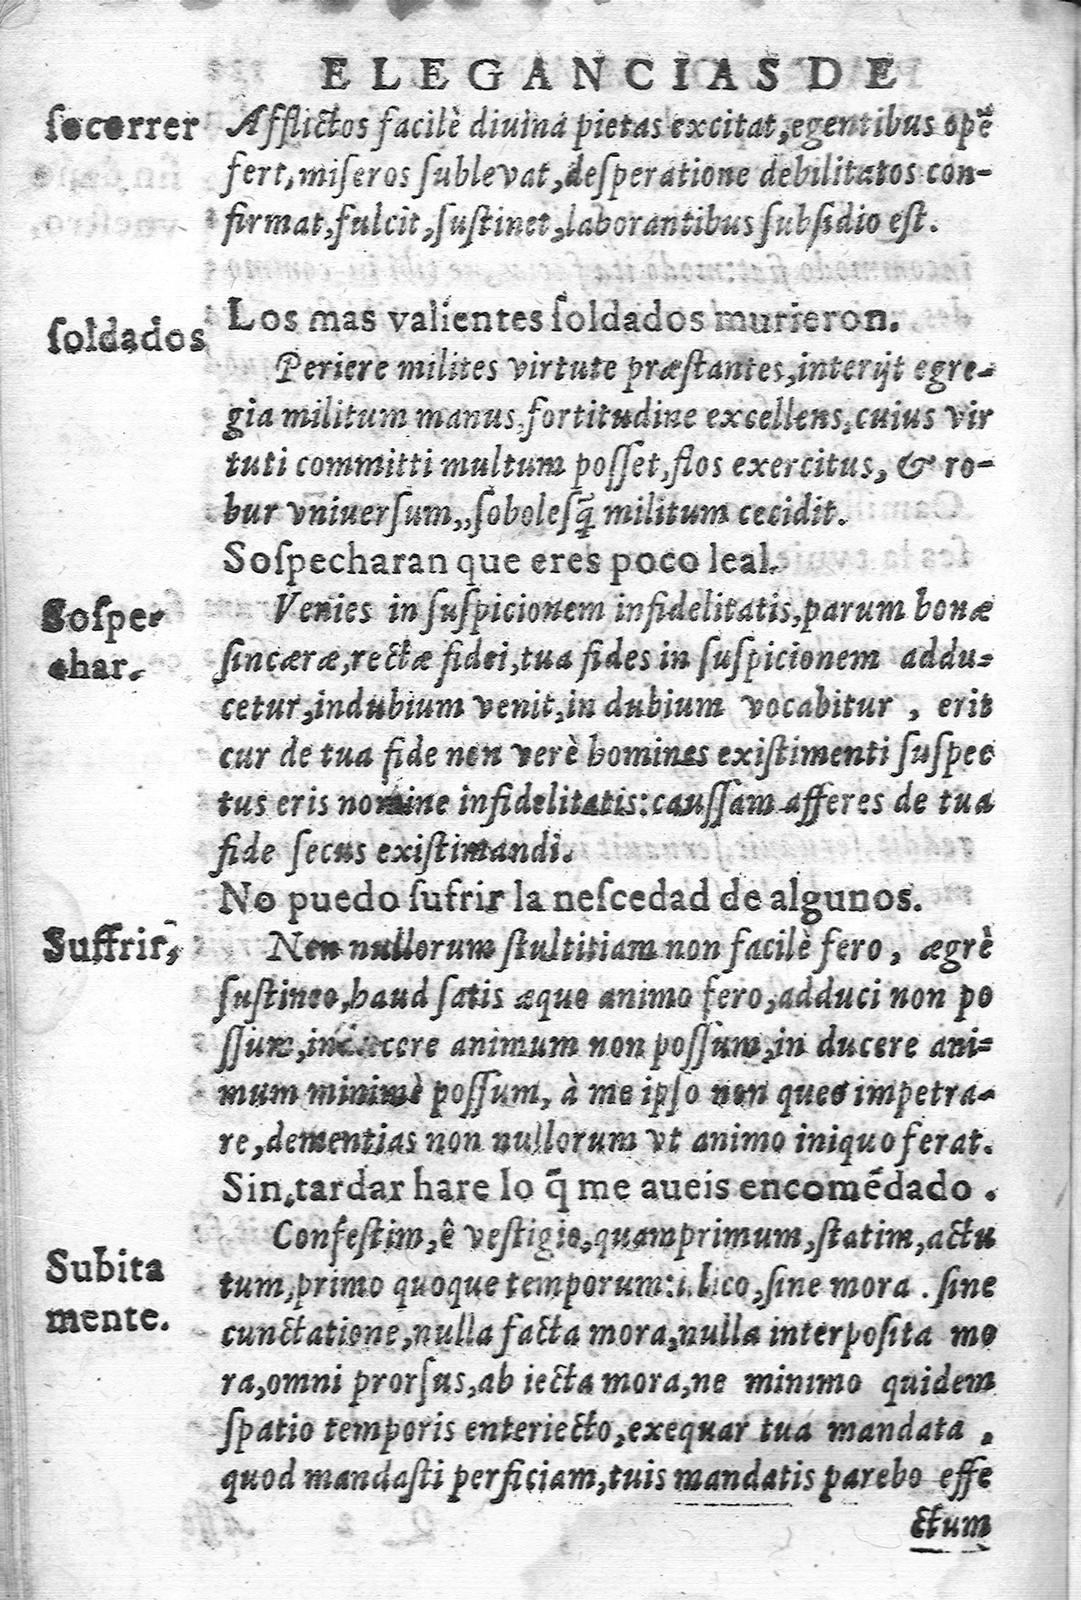 ELEGANCIAS DE
ſocorrer
Afflictos facilè diuina pietas excitat, egentibus opẽ
fert, miſeros ſublevat, deſperatione debilitatos con-
firmat, fulcit, ſuſtinet, laborantibus ſubſidio eſt.
ſoldados
Los mas valientes ſoldados murieron.
Periere milites virtute præſtantes, interijt egre-
gia militum manus, fortitudine excellens, cuius vir
tuti committi multum poſſet, flos exercitus, & ro-
bur vniuerſum,, ſoboleſq̃ militum cecidit.
Soſpecharan que eres poco leal.
Soſpe-
char.
Venies in ſuſpicionem infidelitatis, parum bonæ
ſincæræ, rectæ fidei, tua fides in ſuſpicionem addu-
cetur, indubium venit, in dubium vocabitur, erit
cur de tua fide non verè homines exiſtimenti ſuſpec
tus eris nomine infidelitatis: cauſſam afferes de tua
fide ſecus exiſtimandi.
No puedo ſufrir la neſcedad de algunos.
Suffrir,
Non nullorum ſtultitiam non facilè fero, ægrè
ſuſtineo, haud ſatis æquo animo fero, adduci non po
ſſum, cere animum non poſſum, in ducere ani-
mum minimè poſſum, à me ipſo non queo impetra-
re, dementias non nullorum vt animo iniquo ferat.
Sin tardar hare lo q̃ me aueis encomẽdado.
Subita
mente.
Confeſtim, ê veſtigio, quamprimum, ſtatim, actu
tum, primo quoque temporum: illico, ſine mora. ſine
cunctatione, nulla facta mora, nulla interpoſita mo
ra, omni prorſus, ab iecta mora, ne minimo quidem
ſpatio temporis enteriecto, exequar tua mandata,
quod mandaſti perficiam, tuis mandatis parebo effe
ctum